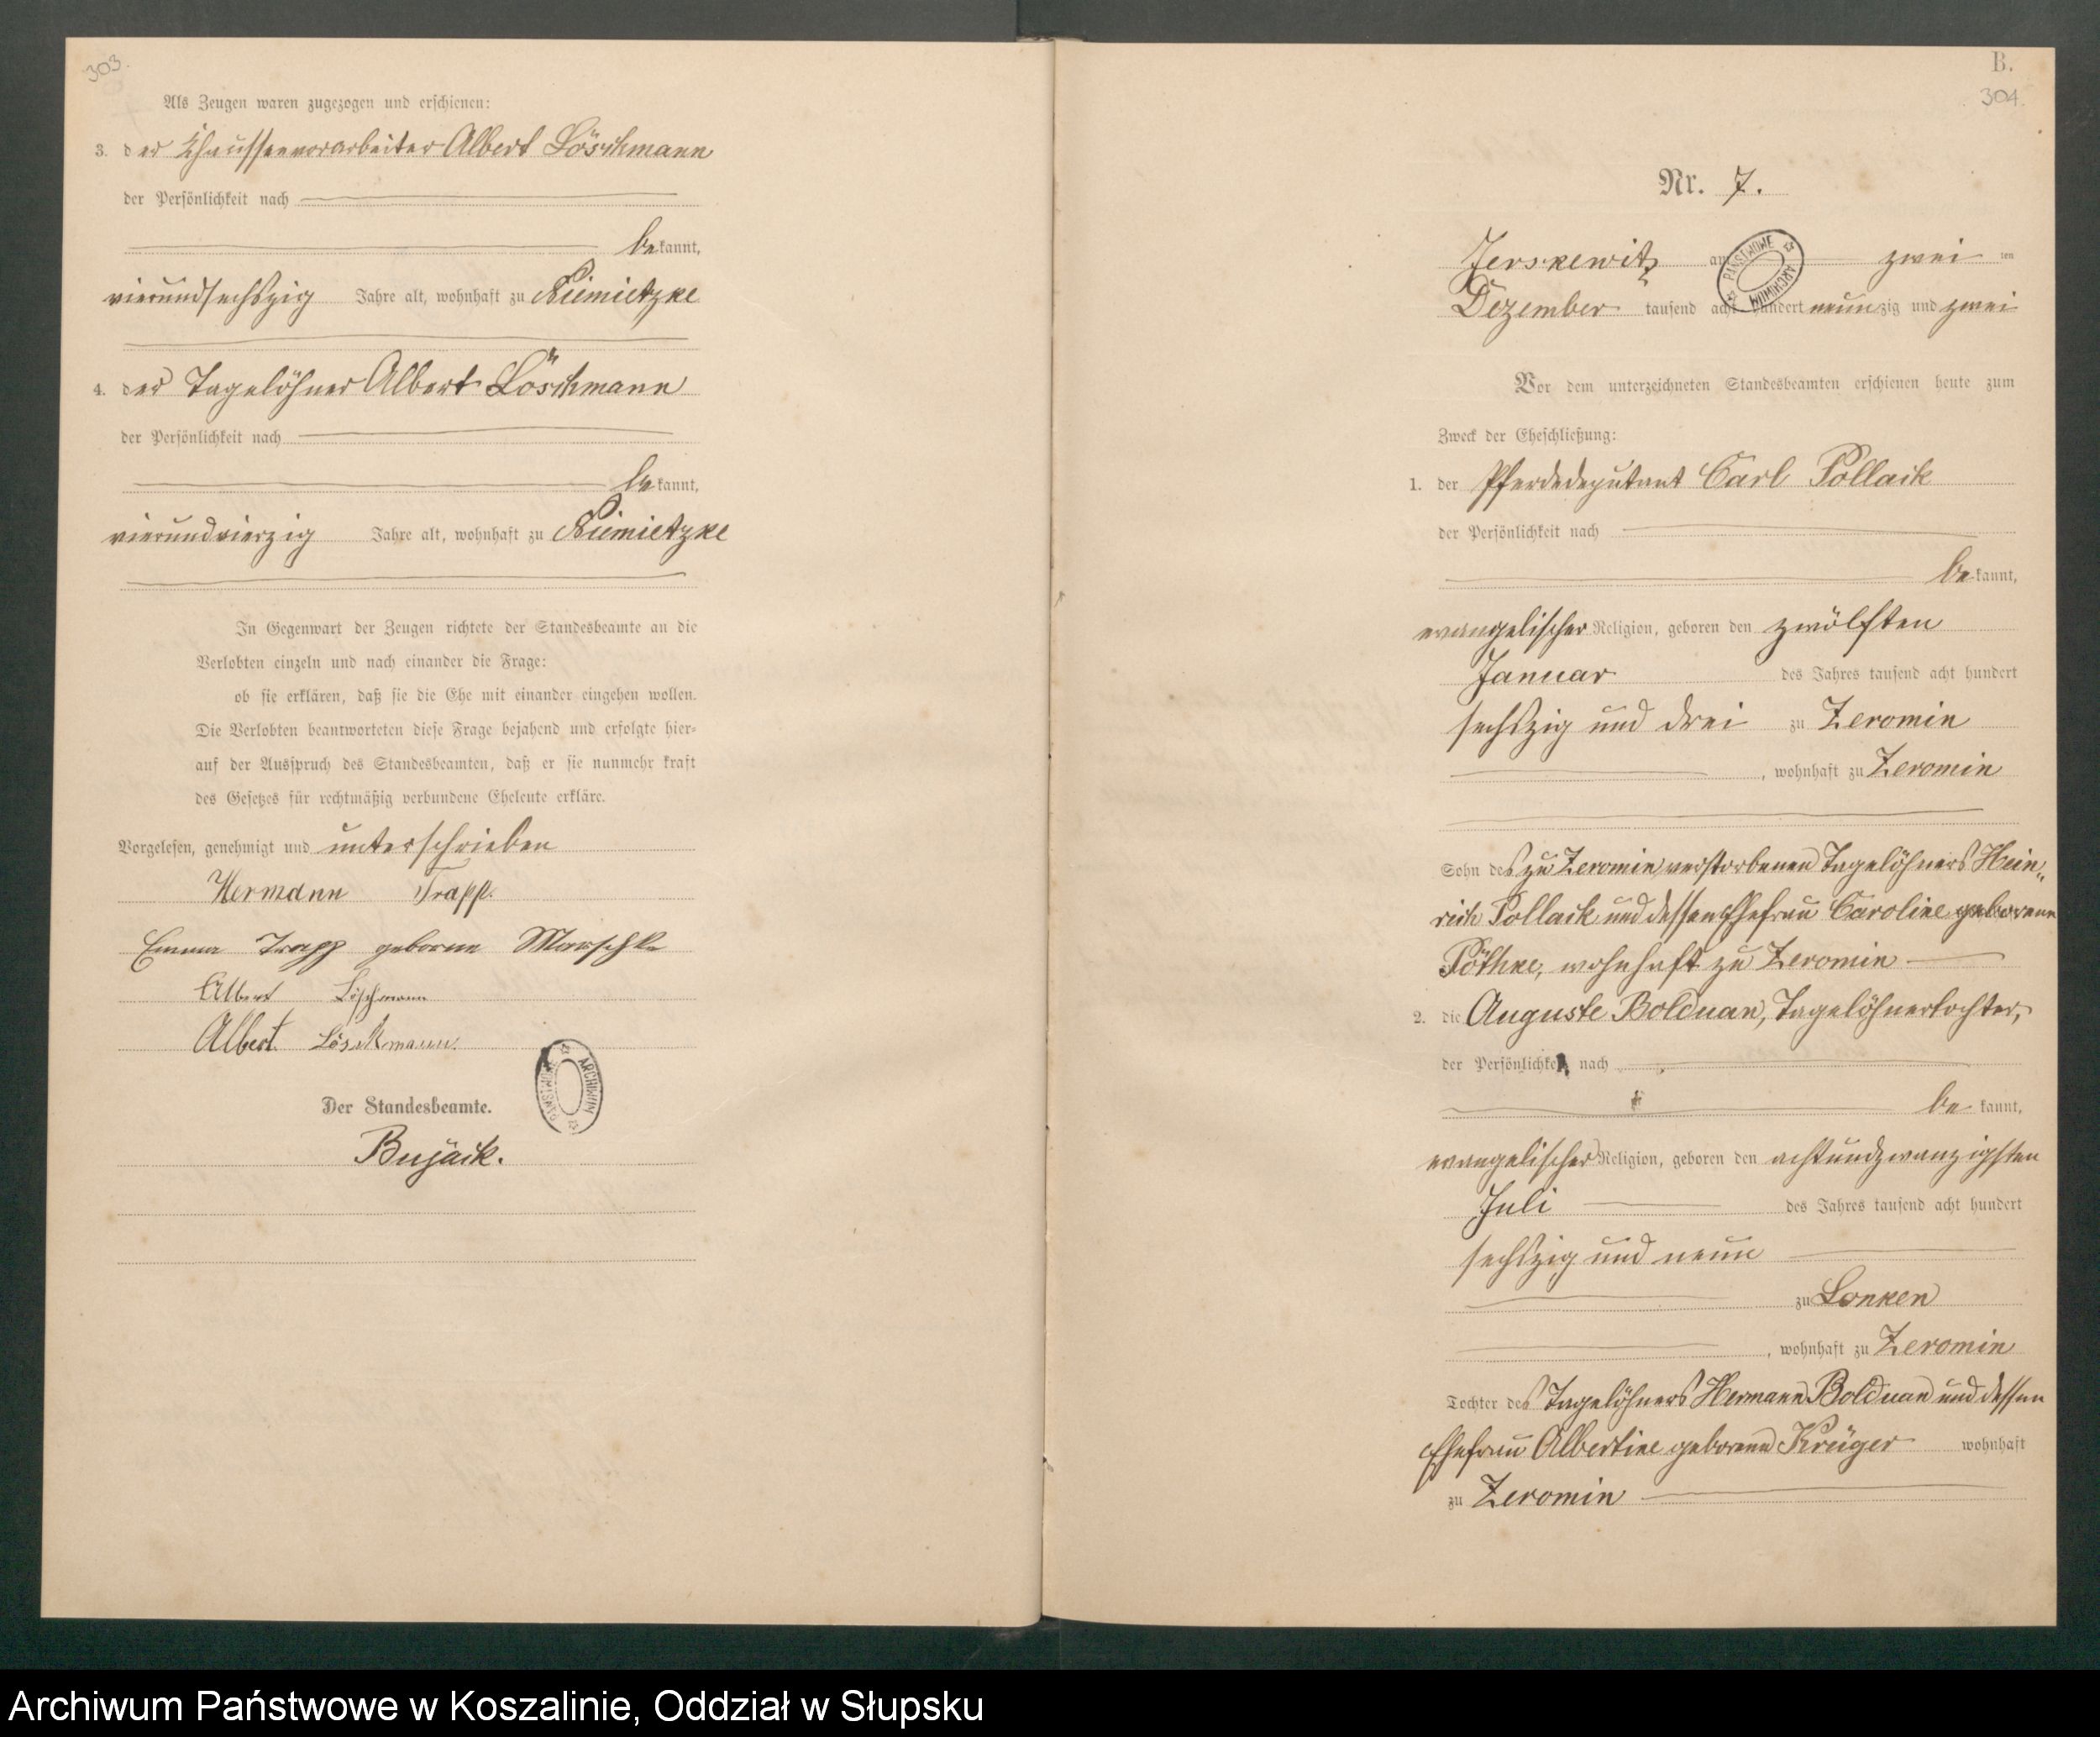 303.
Als Zeugen waren zugezogen und erschienen:
3. der Chausseevorarbeiter Albert Löschmann
der Persönlichkeit nach
bekannt,
vierundsechszig Jahre alt, wohnhaft zu Niemietzke
4. der Tagelöhner Albert Löschmann
der Persönlichkeit nach
bekannt,
vierundvierzig Jahre alt, wohnhaft zu Niemietzke
In Gegenwart der Zeugen richtete der Standesbeamte an die
Verlobten einzeln und nach einander die Frage:
ob sie erklären, daß sie die Ehe mit einander eingehen wollen.
Die Verlobten beantworteten diese Frage bejahend und erfolgte hier-
auf der Ausspruch des Standesbeamten, daß er sie nunmehr kraft
des Gesetzes für rechtmäßig verbundene Eheleute erkläre.
Vorgelesen, genehmigt und unterschrieben
Hermann Trapp.
Emma Trapp geborene Marschke
Albert Löschmann
Albert Löschmann.
ARCHIWUM PAŃSTWOWE
Der Standesbeamte.
Bujack.
B.
304.
Nr. 7.
Jerskewitz am zwei ten
PAŃSTWOWE ARCHIWUM
Dezember tausend acht hundert neunzig und zwei
Vor dem unterzeichneten Standesbeamten erschienen heute zum
Zweck der Eheschließung:
1. der Pferdedeputant Carl Pollack
der Persönlichkeit nach
bekannt,
evangelischer Religion, geboren den zwölften
Januar des Jahres tausend acht hundert
sechszig und drei zu Zeromin
, wohnhaft zu Zeromin
Sohn des zu Zeromin verstorbenen Tagelöhners Hein„
rich Pollack und dessen Ehefrau Caroline geborene
Pöthke, wohnhaft zu Zeromin
2. die Auguste Bolduan, Tagelöhnertochter,
der Persönlichkeit nach
bekannt,
evangelischer Religion, geboren den achtundzwanzigsten
Juli des Jahres tausend acht hundert
sechszig und neun
zu Lonken
, wohnhaft zu Zeromin
Tochter des Tagelöhners Hermann Bolduan und dessen
Ehefrau Albertine geborene Krüger wohnhaft
zu Zeromin
Archiwum Państwowe w Koszalinie, Oddział w Słupsku